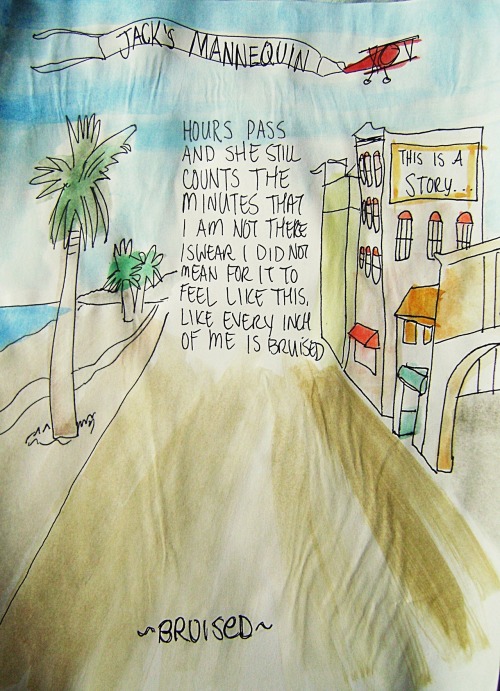 JACK'S MANNEQUIN
HOURS PASS
AND SHE STILL
COUNTS THE
MINUTES THAT
I AM NOT THERE
I SWEAR I DID NOT
MEAN FOR IT TO
FEEL LIKE THIS,
LIKE EVERY INCH
OF ME IS BRUISED
THIS IS A
STORY...
~BRUISED~